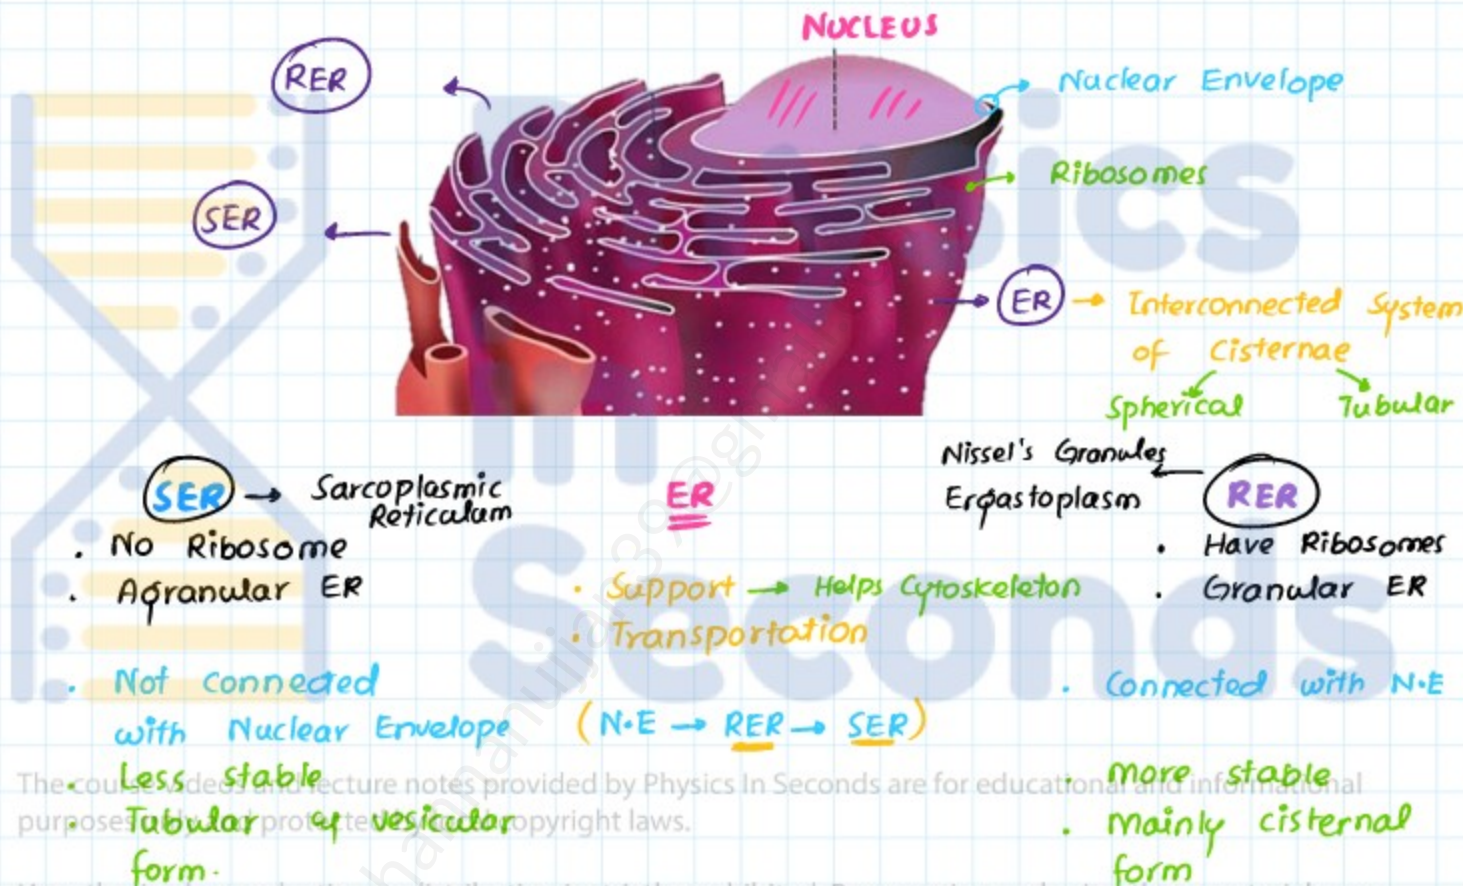 NUCLEUS
RER
Nuclear Envelope
Ribosomes
SER
ER → Interconnected System
of Cisternae
Spherical Tubular
SER → Sarcoplasmic
Reticulum
. No Ribosome
. Agranular ER
. Not Connected
with Nuclear Envelope
. Less stable
. Tubular & vesicular
form.
ER
. Support → Helps Cytoskeleton
. Transportation
(N.E → RER → SER)
Nissel's Granules
Ergastoplasm
RER
. Have Ribosomes
. Granular ER
. Connected with N.E
. more stable
. mainly cisternal
form
Physics
In
Seconds
The course videos and lecture notes provided by Physics In Seconds are for educational and informational
purposes protected copyright laws.